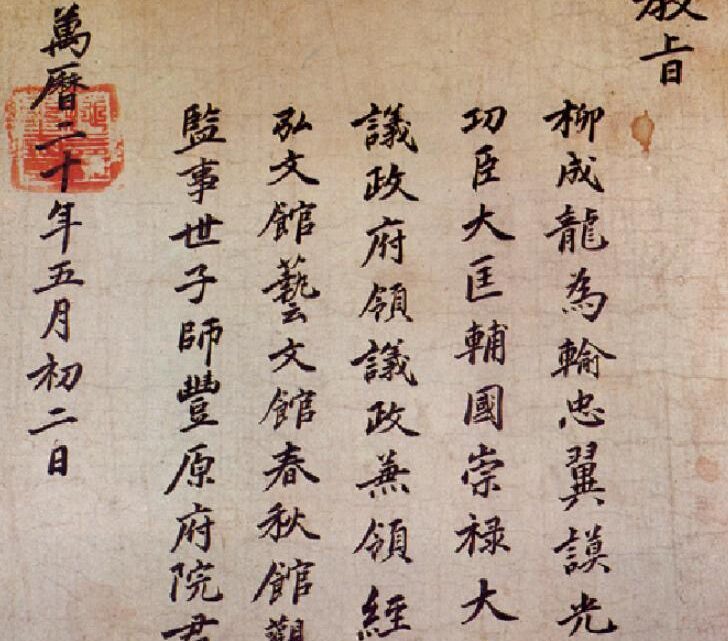 教旨
柳成龍為輸忠翼謨光
功臣大匡輔國崇祿大
議政府領議政兼領經
弘文館藝文館春秋館觀
監事世子師豐原府院君
萬曆二十年五月初二日